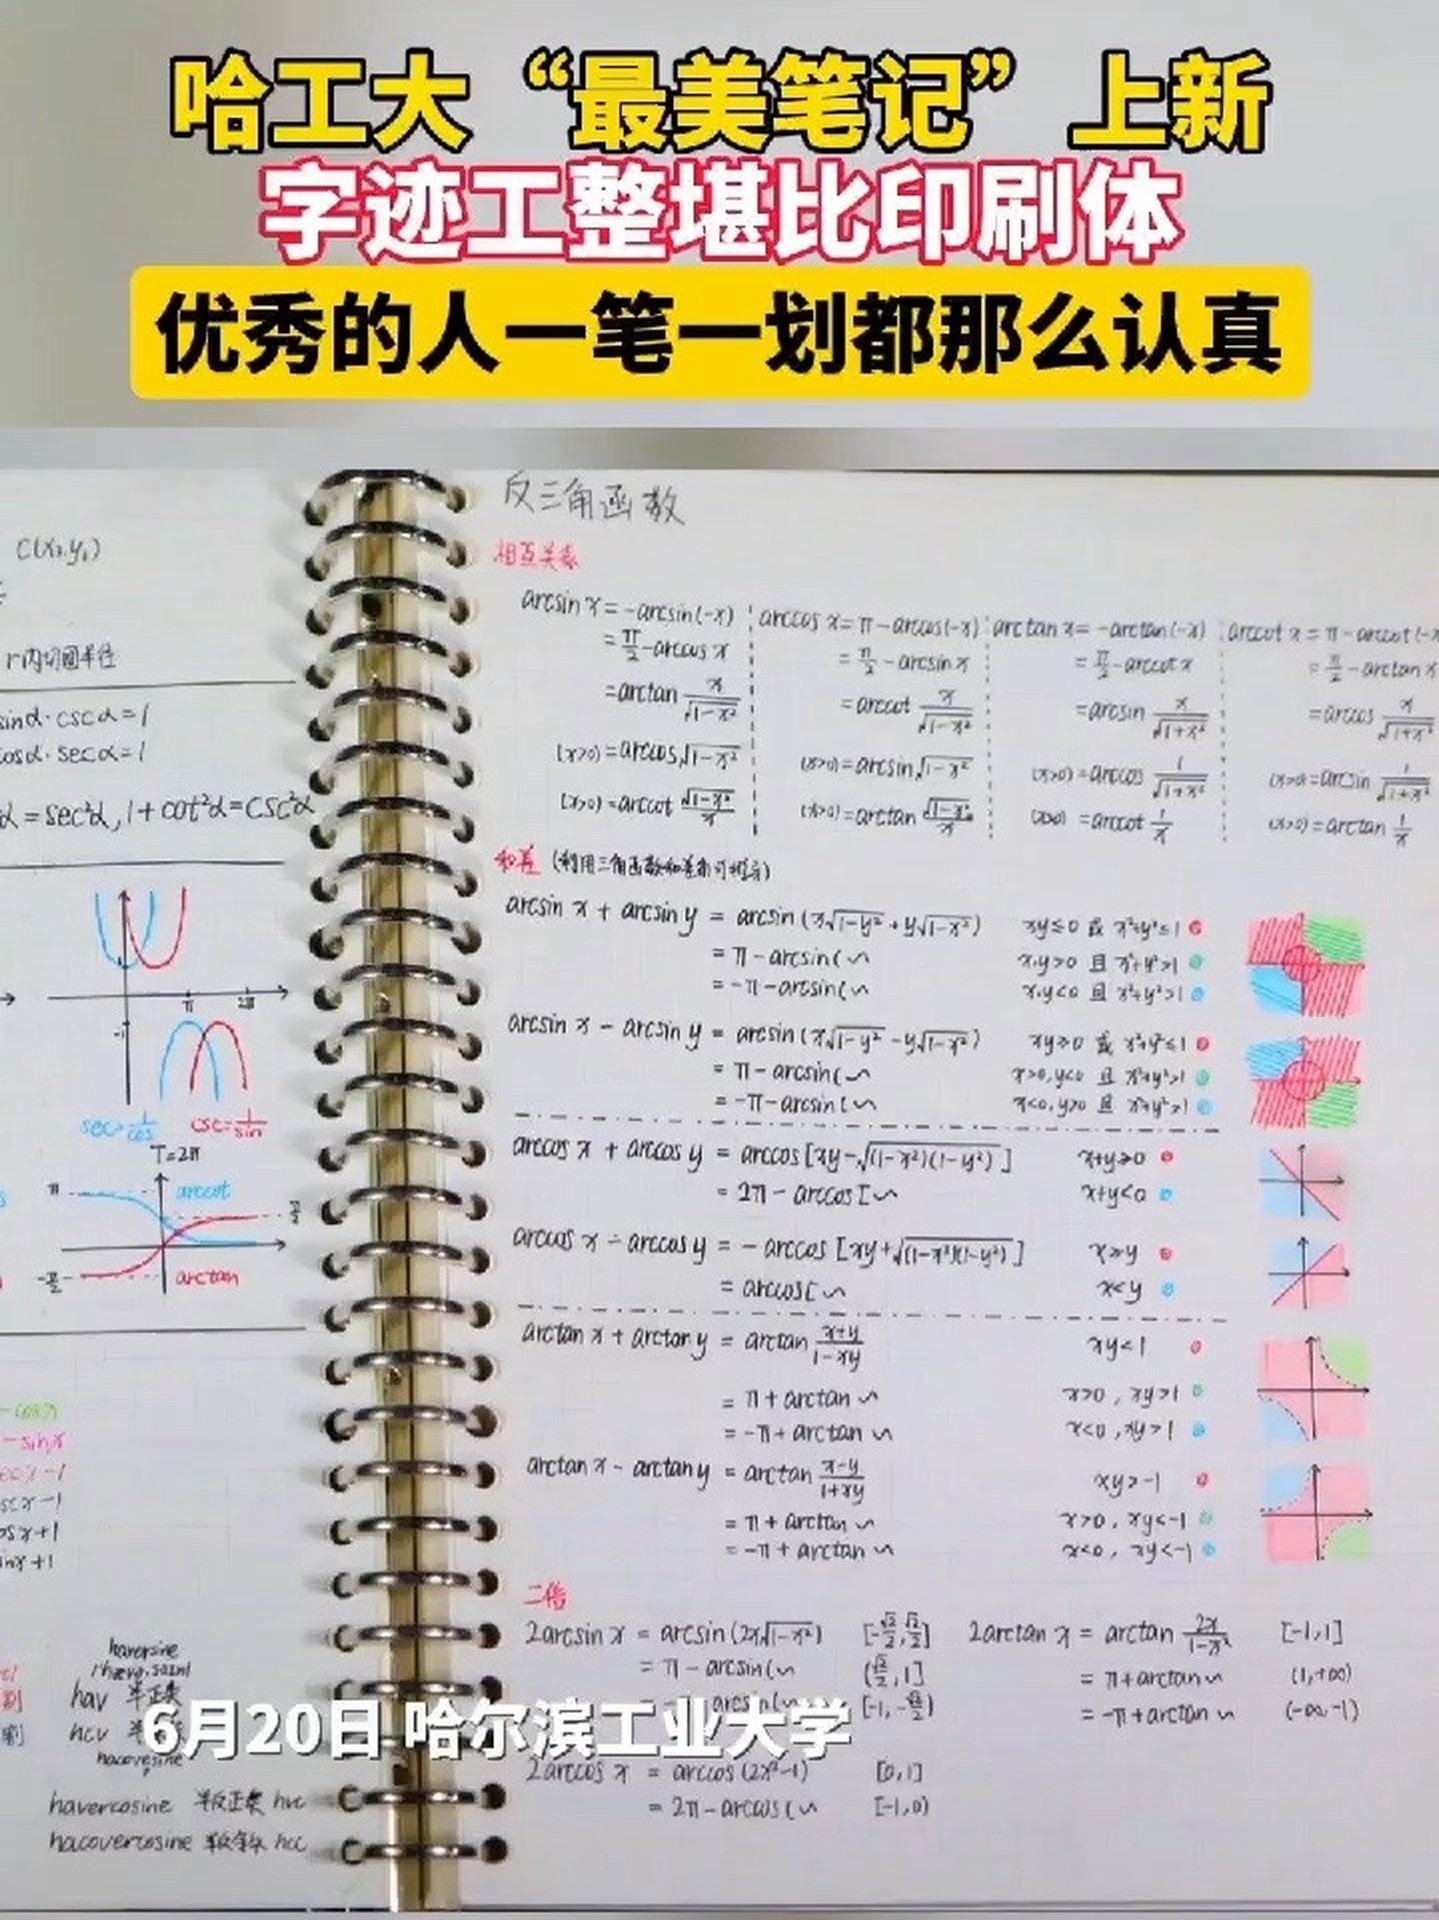 哈工大“最美笔记”上新
字迹工整堪比印刷体
优秀的人一笔一划都那么认真
C(x₃,y₃)
r内切圆半径
sinα·cscα=1
cosα·secα=1
α=sec²α, 1+cot²α=csc²α
π 2π
-1
sec=1/cos csc=1/sin
T=2π
π arccot π/2
-π/2 arctan
-cosx
-sinx
secx-1
cscx-1
cosx+1
sinx+1
haversine
hav 半正矢
hcv
hacoversine
havercosine 半余正矢 hvc
hacovercosine 半余余矢 hcc
反三角函数
相互关系
arcsin x = -arcsin(-x) arccos x = π-arccos(-x) arctan x = -arctan(-x) arccot x = π-arccot(-x
= π/2 - arccos x = π/2 - arcsin x = π/2 - arccot x = π/2 - arctan x
= arctan x/√(1-x²) = arccot x/√(1-x²) = arcsin x/√(1+x²) = arccos x/√(1+x²)
(x>0) = arccos√(1-x²) (x>0) = arcsin√(1-x²) (x>0) = arccos 1/√(1+x²) (x>0) = arcsin 1/√(1+x²)
(x>0) = arccot √(1-x²)/x (x>0) = arctan √(1-x²)/x (x>0) = arccot 1/x (x>0) = arctan 1/x
和差 (利用三角函数和差角可推导)
arcsin x + arcsin y = arcsin(x√(1-y²)+y√(1-x²)) xy≤0 或 x²+y²≤1
= π - arcsin(~ x,y>0 且 x²+y²>1
= -π - arcsin(~ x,y<0 且 x²+y²>1
arcsin x - arcsin y = arcsin(x√(1-y²)-y√(1-x²)) xy≥0 或 x²+y²≤1
= π - arcsin(~ x>0,y<0 且 x²+y²>1
= -π - arcsin(~ x<0,y>0 且 x²+y²>1
arccos x + arccos y = arccos[xy-√((1-x²)(1-y²))] x+y≥0
= 2π - arccos[~ x+y<0
arccos x - arccos y = -arccos[xy+√((1-x²)(1-y²))] x≥y
= arccos[~ x<y
arctan x + arctan y = arctan (x+y)/(1-xy) xy<1
= π + arctan ~ x>0, xy>1
= -π + arctan ~ x<0, xy>1
arctan x - arctan y = arctan (x-y)/(1+xy) xy>-1
= π + arctan ~ x>0, xy<-1
= -π + arctan ~ x<0, xy<-1
二倍
2arcsin x = arcsin(2x√(1-x²)) [-√2/2,√2/2] 2arctan x = arctan 2x/(1-x²) [-1,1]
= π - arcsin(~ (√2/2,1] = π+arctan ~ (1,+∞)
= -π - arcsin(~ [-1,-√2/2) = -π+arctan ~ (-∞,-1)
6月20日 哈尔滨工业大学
2arccos x = arccos(2x²-1) [0,1]
= 2π - arccos(~ [-1,0)